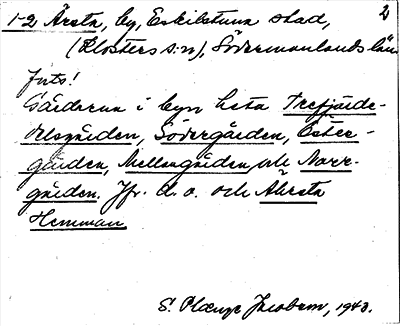 1-2 Årsta, by, Eskilstuna stad, 2
(Klosters s:n), Södermanlands län
Förts!
Gårdarna i byn heta Trefjärde-
delsgården, Södergården, Öster-
gården, Mellangården, och Norr-
gården. Jfr. d. o. och Åkesta
Hemman
S. Jacobson, 1943.